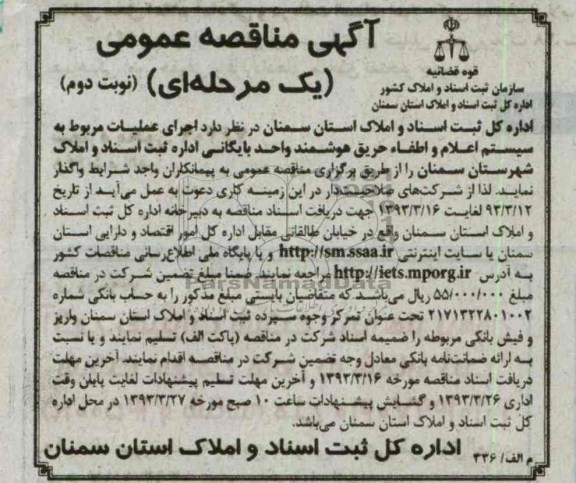 آگهی مناقصه عمومی
(یک مرحله‌ای) (نوبت دوم)
قوه قضائیه
سازمان ثبت اسناد و املاک کشور
اداره کل ثبت اسناد و املاک استان سمنان
اداره کل ثبت اسناد و املاک استان سمنان در نظر دارد اجرای عملیات مربوط به
سیستم اعلام و اطفاء حریق هوشمند واحد بایگانی اداره ثبت اسناد و املاک
شهرستان سمنان را از طریق برگزاری مناقصه عمومی به پیمانکاران واجد شرایط واگذار
نماید. لذا از شرکت‌های صلاحیتدار در این زمینه کاری دعوت به عمل می‌آید از تاریخ
۹۳/۳/۱۲ لغایت ۱۳۹۳/۳/۱۶ جهت دریافت اسناد مناقصه به دبیرخانه اداره کل ثبت اسناد
و املاک استان سمنان واقع در خیابان طالقانی مقابل اداره کل امور اقتصاد و دارایی استان
سمنان یا سایت اینترنتی http://sm.ssaa.ir و یا پایگاه ملی اطلاع‌رسانی مناقصات کشور
به آدرس http://iets.mporg.ir مراجعه نمایند. ضمنا مبلغ تضمین شرکت در مناقصه
مبلغ ۵۵/۰۰۰/۰۰۰ ریال می‌باشد که متقاضیان بایستی مبلغ مذکور را به حساب بانکی شماره
۲۱۷۱۳۲۲۸۰۱۰۰۲ تحت عنوان تمرکز وجوه سپرده ثبت اسناد و املاک استان سمنان واریز
و فیش بانکی مربوطه را ضمیمه اسناد شرکت در مناقصه (پاکت الف) تسلیم نمایند و یا نسبت
به ارائه ضمانت‌نامه بانکی معادل وجه تضمین شرکت در مناقصه اقدام نمایند. آخرین مهلت
دریافت اسناد مناقصه مورخه ۱۳۹۳/۳/۱۶ و آخرین مهلت تسلیم پیشنهادات لغایت پایان وقت
اداری ۱۳۹۳/۳/۲۶ و گشایش پیشنهادات ساعت ۱۰ صبح مورخه ۱۳۹۳/۳/۲۷ در محل اداره
کل ثبت اسناد و املاک استان سمنان می‌باشد.
م الف/ ۳۳۶ اداره کل ثبت اسناد و املاک استان سمنان
ParsNamadData